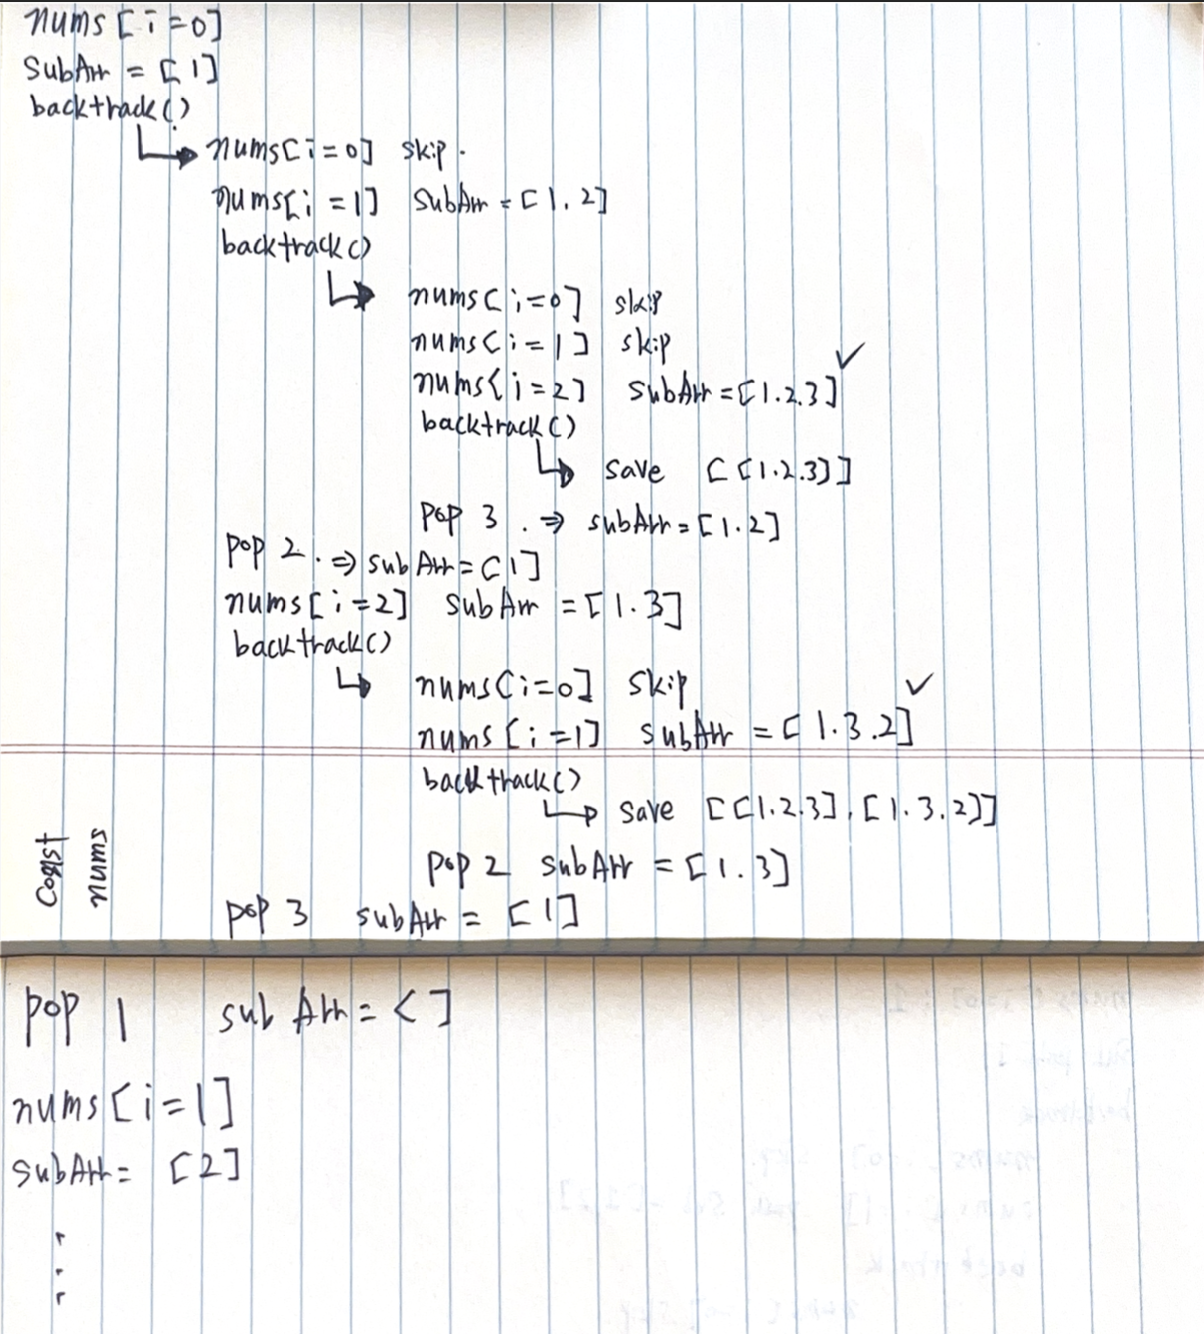 nums [i=0]
SubArr = [1]
backtrack()
nums[i=0] skip.
nums[i=1] SubArr = [1.2]
backtrack()
nums[i=0] skip
nums[i=1] skip
nums[i=2] subArr = [1.2.3] ✓
backtrack()
save [[1.2.3]]
pop 3. ⇒ subArr = [1.2]
pop 2. ⇒ subArr = [1]
nums[i=2] subArr = [1.3]
backtrack()
nums[i=0] skip
nums[i=1] subArr = [1.3.2] ✓
backtrack()
save [[1.2.3], [1.3.2]]
pop 2 subArr = [1.3]
pop 3 subArr = [1]
nums
pop 1 subArr = []
nums[i=1]
subArr = [2]